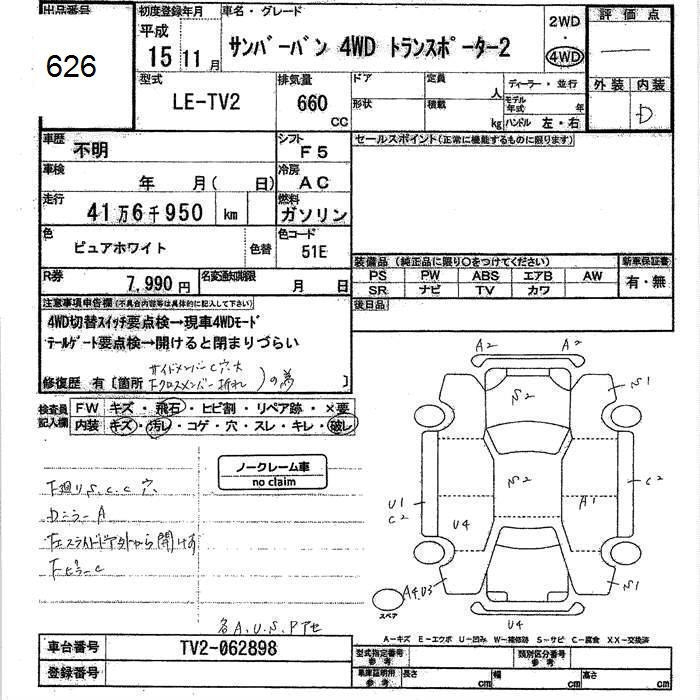 出品番号 初度登録年月 車名・グレード 2WD 評価点
626 平成 15 11月 サンバーバン 4WD トランスポーター2 4WD
型式 排気量 ドア 定員 人 ディーラー・並行 外装 内装
LE-TV2 660 CC 形状 積載 kg モデル年式 年 D
ハンドル 左・右
車歴 不明 シフト F5 セールスポイント(正常に機能するものに限ります)
車検 年 月( 日) 冷房 AC
走行 41万6千950 km 燃料 ガソリン
色 ピュアホワイト 色替 色コード 51E
装備品 (純正品に限り○をつけてください) 新車保証書
PS PW ABS エアB AW 有・無
R券 7,990円 名変通知期限 月 日 SR ナビ TV カワ
注意事項申告欄(不具合内容等は具体的に記入して下さい) 後日品
4WD切替スイッチ要点検→現車4WDモード
テールゲート要点検→開けると閉まりづらい
修復歴 有〔箇所 サイドメンバーC穴大 Fクロスメンバー折れ )の為 〕
検査員記入欄 FW キズ・飛石・ヒビ割・リペア跡・×要
内装 キズ・汚レ・コゲ・穴・スレ・キレ・破レ
ノークレーム車
no claim
下廻りS.C.C穴
Dミラー A
Fピラーc
各A.U.S.Pアセ
A2 A2
S2 S1
S2 C2
U1
C2 U4 A1
A4U3 S1
スペア U4
A-キズ E-エクボ U-凹み W-補修跡 S-サビ C-腐食 XX-交換済
車台番号 TV2-062898 型式指定番号 参考 類別区分番号 参考
登録番号 車庫証明用 参考 長さ cm 幅 cm 高さ cm